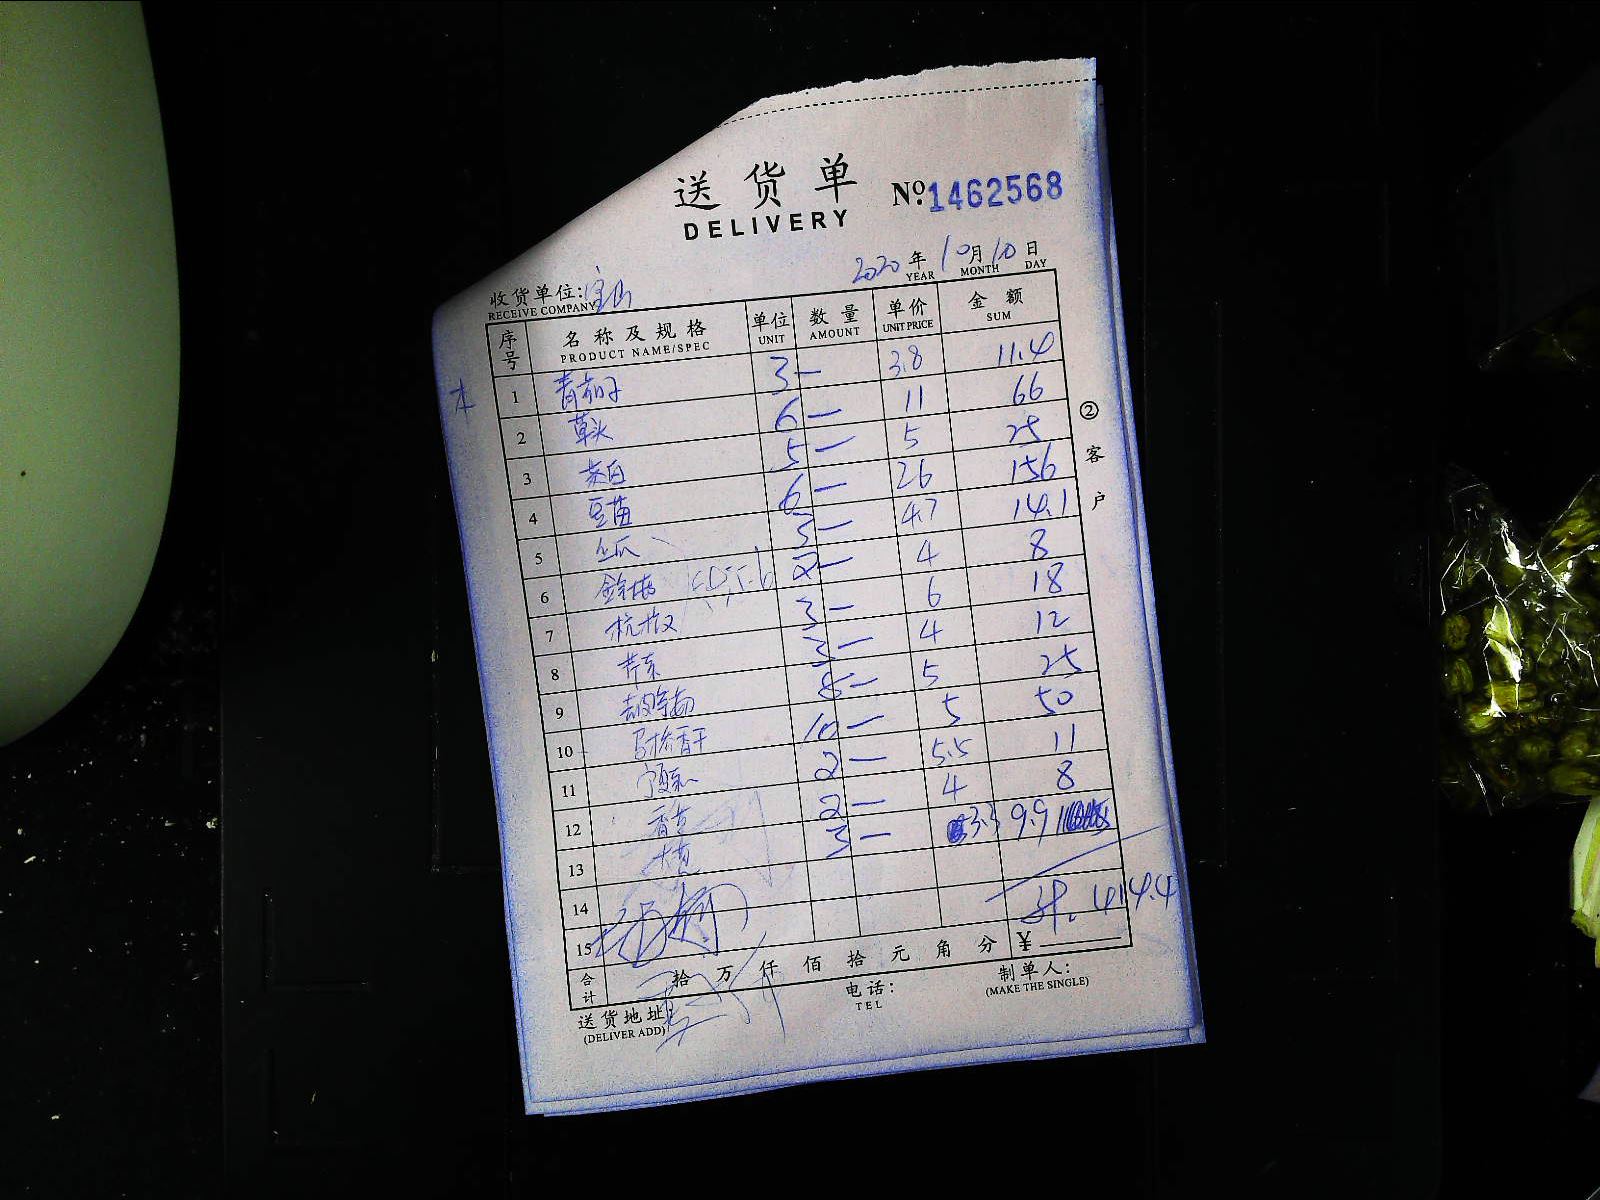 送货单 No:1462568
DELIVERY
2020年10月10日
YEAR MONTH DAY
收货单位:宝山
RECEIVE COMPANY
序号 名称及规格 单位 数量 单价 金额
PRODUCT NAME/SPEC UNIT AMOUNT UNIT PRICE SUM
1 青茄子 3— 3.8 11.4
2 草头 6— 11 66
3 茭白 5— 5 25
4 豆苗 6— 26 156
5 冬瓜 3— 4.7 14.1
6 2— 4 8
7 杭椒 3— 6 18
8 芹菜 3— 4 12
9 5— 5 25
10 马桥香干 10— 5 50
11 2— 5.5 11
12 香菜 2— 4 8
13 大葱 3— 3.3 9.9
14
15
计. 414.4
合计 拾 万 仟 佰 拾 元 角 分 ¥
送货地址: 电话: 制单人:
(DELIVER ADD) TEL (MAKE THE SINGLE)
②客户